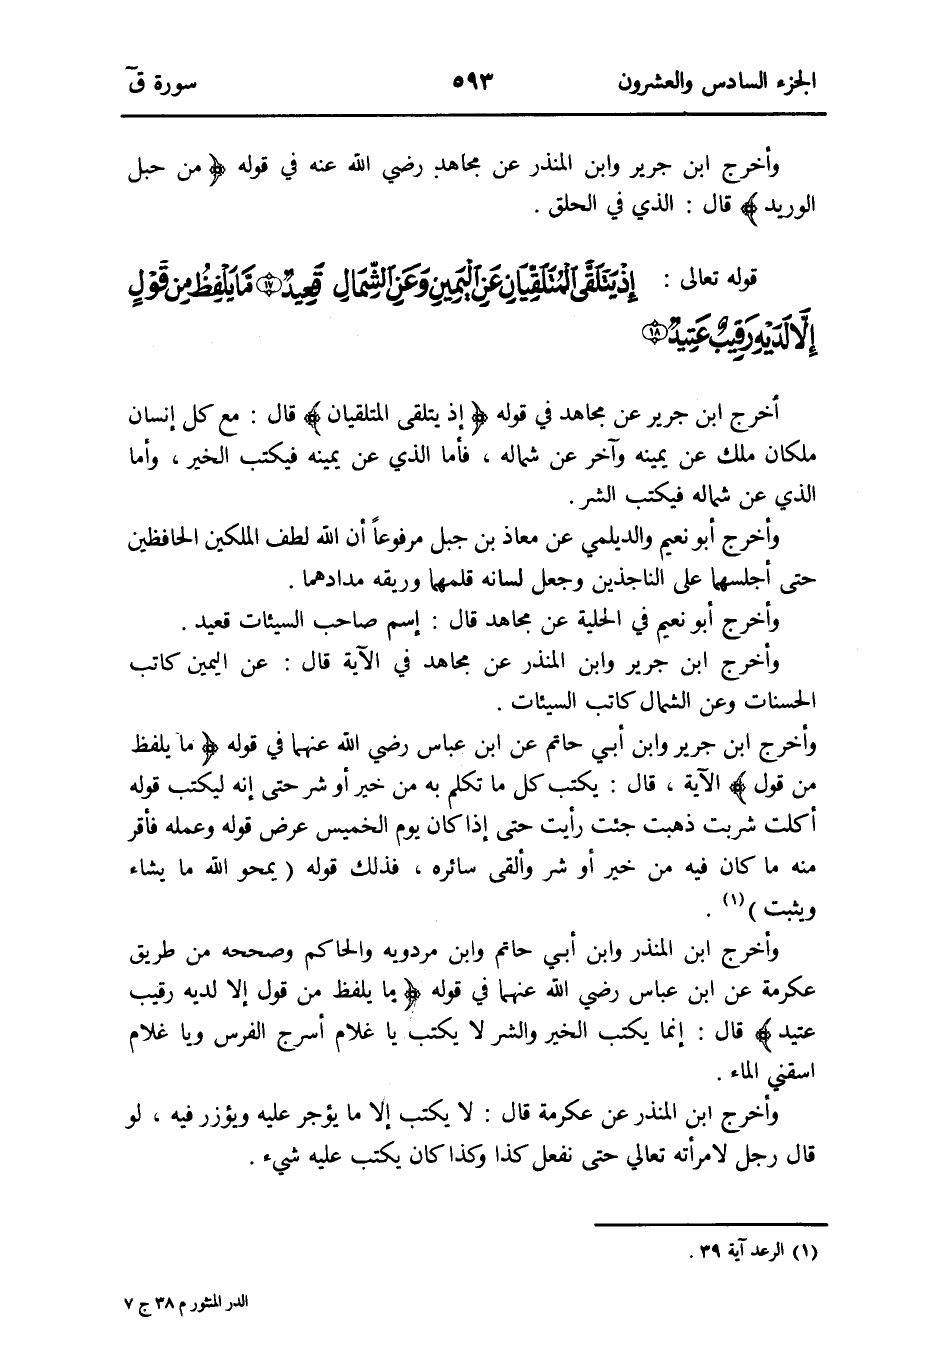 الجزء السادس والعشرون
٥٩٣
سورة قٓ
وأخرج ابن جرير وابن المنذر عن مجاهد رضي الله عنه في قوله ﴿ من حبل
الوريد ﴾ قال : الذي في الحلق .
قوله تعالى : إِذْ يَتَلَقَّى الْمُتَلَقِّيَانِ عَنِ الْيَمِينِ وَعَنِ الشِّمَالِ قَعِيدٌ ١٧ مَّا يَلْفِظُ مِن قَوْلٍ
إِلَّا لَدَيْهِ رَقِيبٌ عَتِيدٌ ١٨
أخرج ابن جرير عن مجاهد في قوله ﴿ إذ يتلقى المتلقيان ﴾ قال : مع كل إنسان
ملكان ملك عن يمينه وآخر عن شماله ، فأما الذي عن يمينه فيكتب الخير ، وأما
الذي عن شماله فيكتب الشر .
وأخرج أبو نعيم والديلمي عن معاذ بن جبل مرفوعاً أن الله لطف الملكين الحافظين
حتى أجلسهما على الناجذين وجعل لسانه قلمهما وريقه مدادهما .
وأخرج أبو نعيم في الحلية عن مجاهد قال : إسم صاحب السيئات قعيد .
وأخرج ابن جرير وابن المنذر عن مجاهد في الآية قال : عن اليمين كاتب
الحسنات وعن الشمال كاتب السيئات .
وأخرج ابن جرير وابن أبي حاتم عن ابن عباس رضي الله عنهما في قوله ﴿ ما يلفظ
من قول ﴾ الآية ، قال : يكتب كل ما تكلم به من خير أو شر حتى إنه ليكتب قوله
أكلت شربت ذهبت جئت رأيت حتى إذا كان يوم الخميس عرض قوله وعمله فأقر
منه ما كان فيه من خير أو شر وألقى سائره ، فذلك قوله ( يمحو الله ما يشاء
ويثبت ) (١) .
وأخرج ابن المنذر وابن أبي حاتم وابن مردويه والحاكم وصححه من طريق
عكرمة عن ابن عباس رضي الله عنهما في قوله ﴿ ما يلفظ من قول إلا لديه رقيب
عتيد ﴾ قال : إنما يكتب الخير والشر لا يكتب يا غلام أسرج الفرس ويا غلام
اسقني الماء .
وأخرج ابن المنذر عن عكرمة قال : لا يكتب إلا ما يؤجر عليه ويؤزر فيه ، لو
قال رجل لامرأته تعالي حتى نفعل كذا وكذا كان يكتب عليه شيء .
(١) الرعد آية ٣٩ .
الدر المنثور م ٣٨ ج ٧